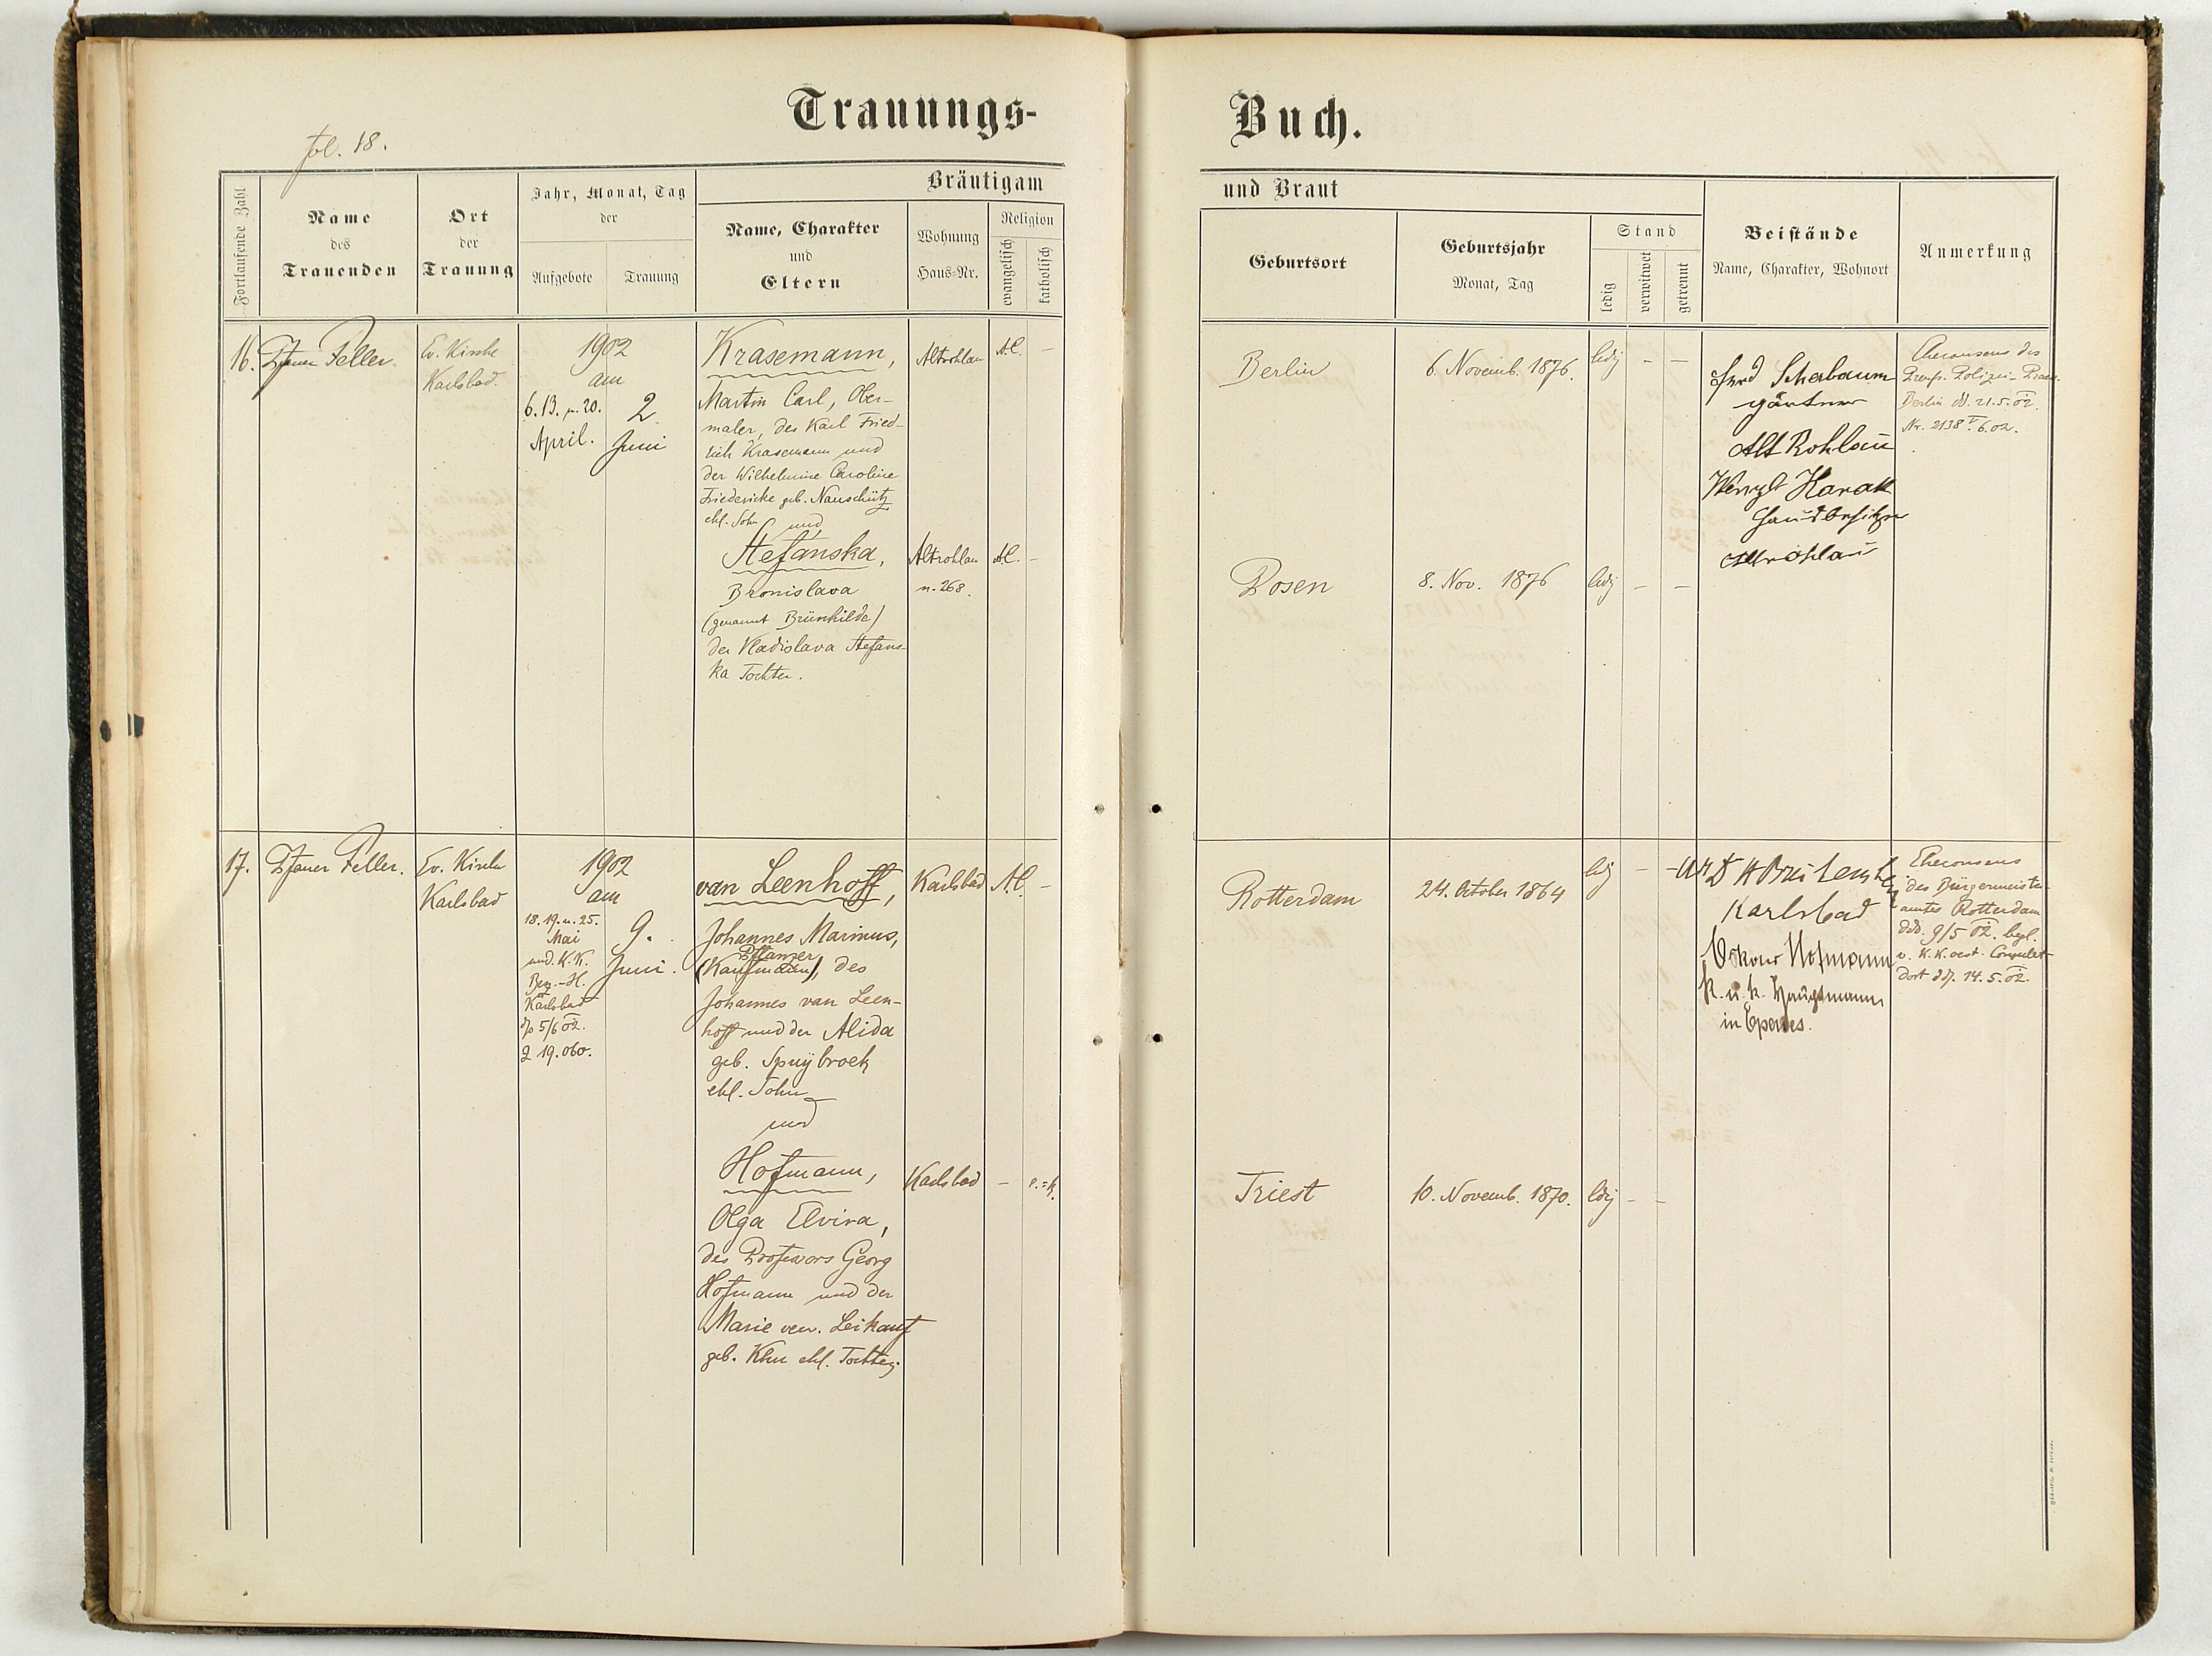 Trauungs-
Buch.
fol. 18.
Fortlaufende Zahl
Name
des
Trauenden
Ort
der
Trauung
Jahr, Monat, Tag
der
Aufgebote
Trauung
Bräutigam
Name, Charakter
und
Eltern
Wohnung
Haus-Nr.
Religion
evangelisch
katholisch
und Braut
Geburtsort
Geburtsjahr
Monat, Tag
Stand
ledig
verwitwet
getrennt
Beistände
Name, Charakter, Wohnort
Anmerkung
16.
Pfarrer Feller.
Ev. Kirche
Karlsbad.
1902
am
6. 13. u. 20.
April.
2
Juni
Krasemann,
Martin Carl, Ober-
maler, des Karl Fried-
rich Krasemann und
der Wilhelmine Caroline
Friedericke geb. Nauschütz
ehl. Sohn und
Stefanska,
Bronislava
(genannt Brünhilde)
der Vladislava Stefans-
ka Tochter.
Altrohlau
A.C.
-
Altrohlau
n. 268.
A.C.
-
Berlin
6. Novemb. 1876.
ledig
-
-
Posen
8. Nov. 1876
ledig
-
-
Schabaum
gärtner
Alt Rohlau
Harak
Altrohlau
Eheconsens des
Preuss. Polizei-
Berlin dd. 21.5.02.
Nr. 2138 6.02.
17.
Pfarrer Feller.
Ev. Kirche
Karlsbad
1902
am
18. 19. u. 25.
Mai
und. K.K.
Bez.-H.
Karlsbad
5/6 02.
19.060.
9.
Juni.
van Leenhoff,
Johannes Marinus,
Pflanzer
(Kaufmann), des
Johannes van Leen-
hoff und der Alida
geb. Spuijbroek
ehl. Sohn
und
Hofmann,
Olga Elvira,
des Professors Georg
Hofmann und der
Marie verw. Leikauf
geb. ehl. Tochter.
Karlsbad
A.C.
-
Karlsbad
-
r.=k.
Rotterdam
24. October 1864
ledig
-
-
Triest
10. Novemb. 1870.
ledig
-
-
Karlsbad
Oskar Hofmann
k. u. k. Hauptmann
in Eperies.
Eheconsens
des Bürgermeister-
amtes Rotterdam
ddo. 9/5 02. begl.
v. K.K. oest. Consulat
dort dd. 14.5.02.